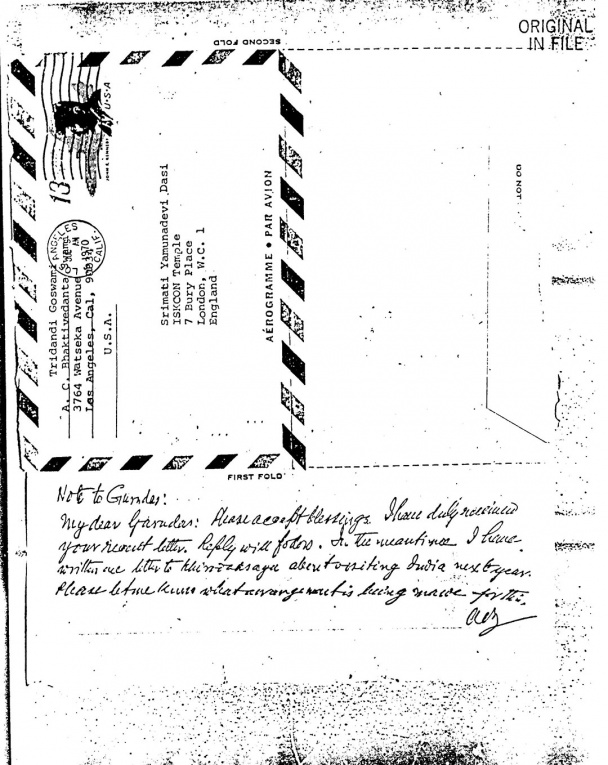 ORIGINAL
IN FILE
SECOND FOLD
U·S·A
13
ANGELES
CALIF.
1970
Tridandi Goswami
A. C. Bhaktivedanta Swami
3764 Watseka Avenue
Los Angeles, Cal, 90034
U.S.A.
Srimati Yamunadevi Dasi
ISKCON Temple
7 Bury Place
London, W.C. 1
England
AÉROGRAMME • PAR AVION
DO NOT
FIRST FOLD
Note to Gurudas:
My dear Gurudas: Please accept blessings. I have duly received
your recent letter. Reply will follow. In the meantime I have
written one letter to about visiting India next year.
Please let me know what arrangement is being made for this.
ACB